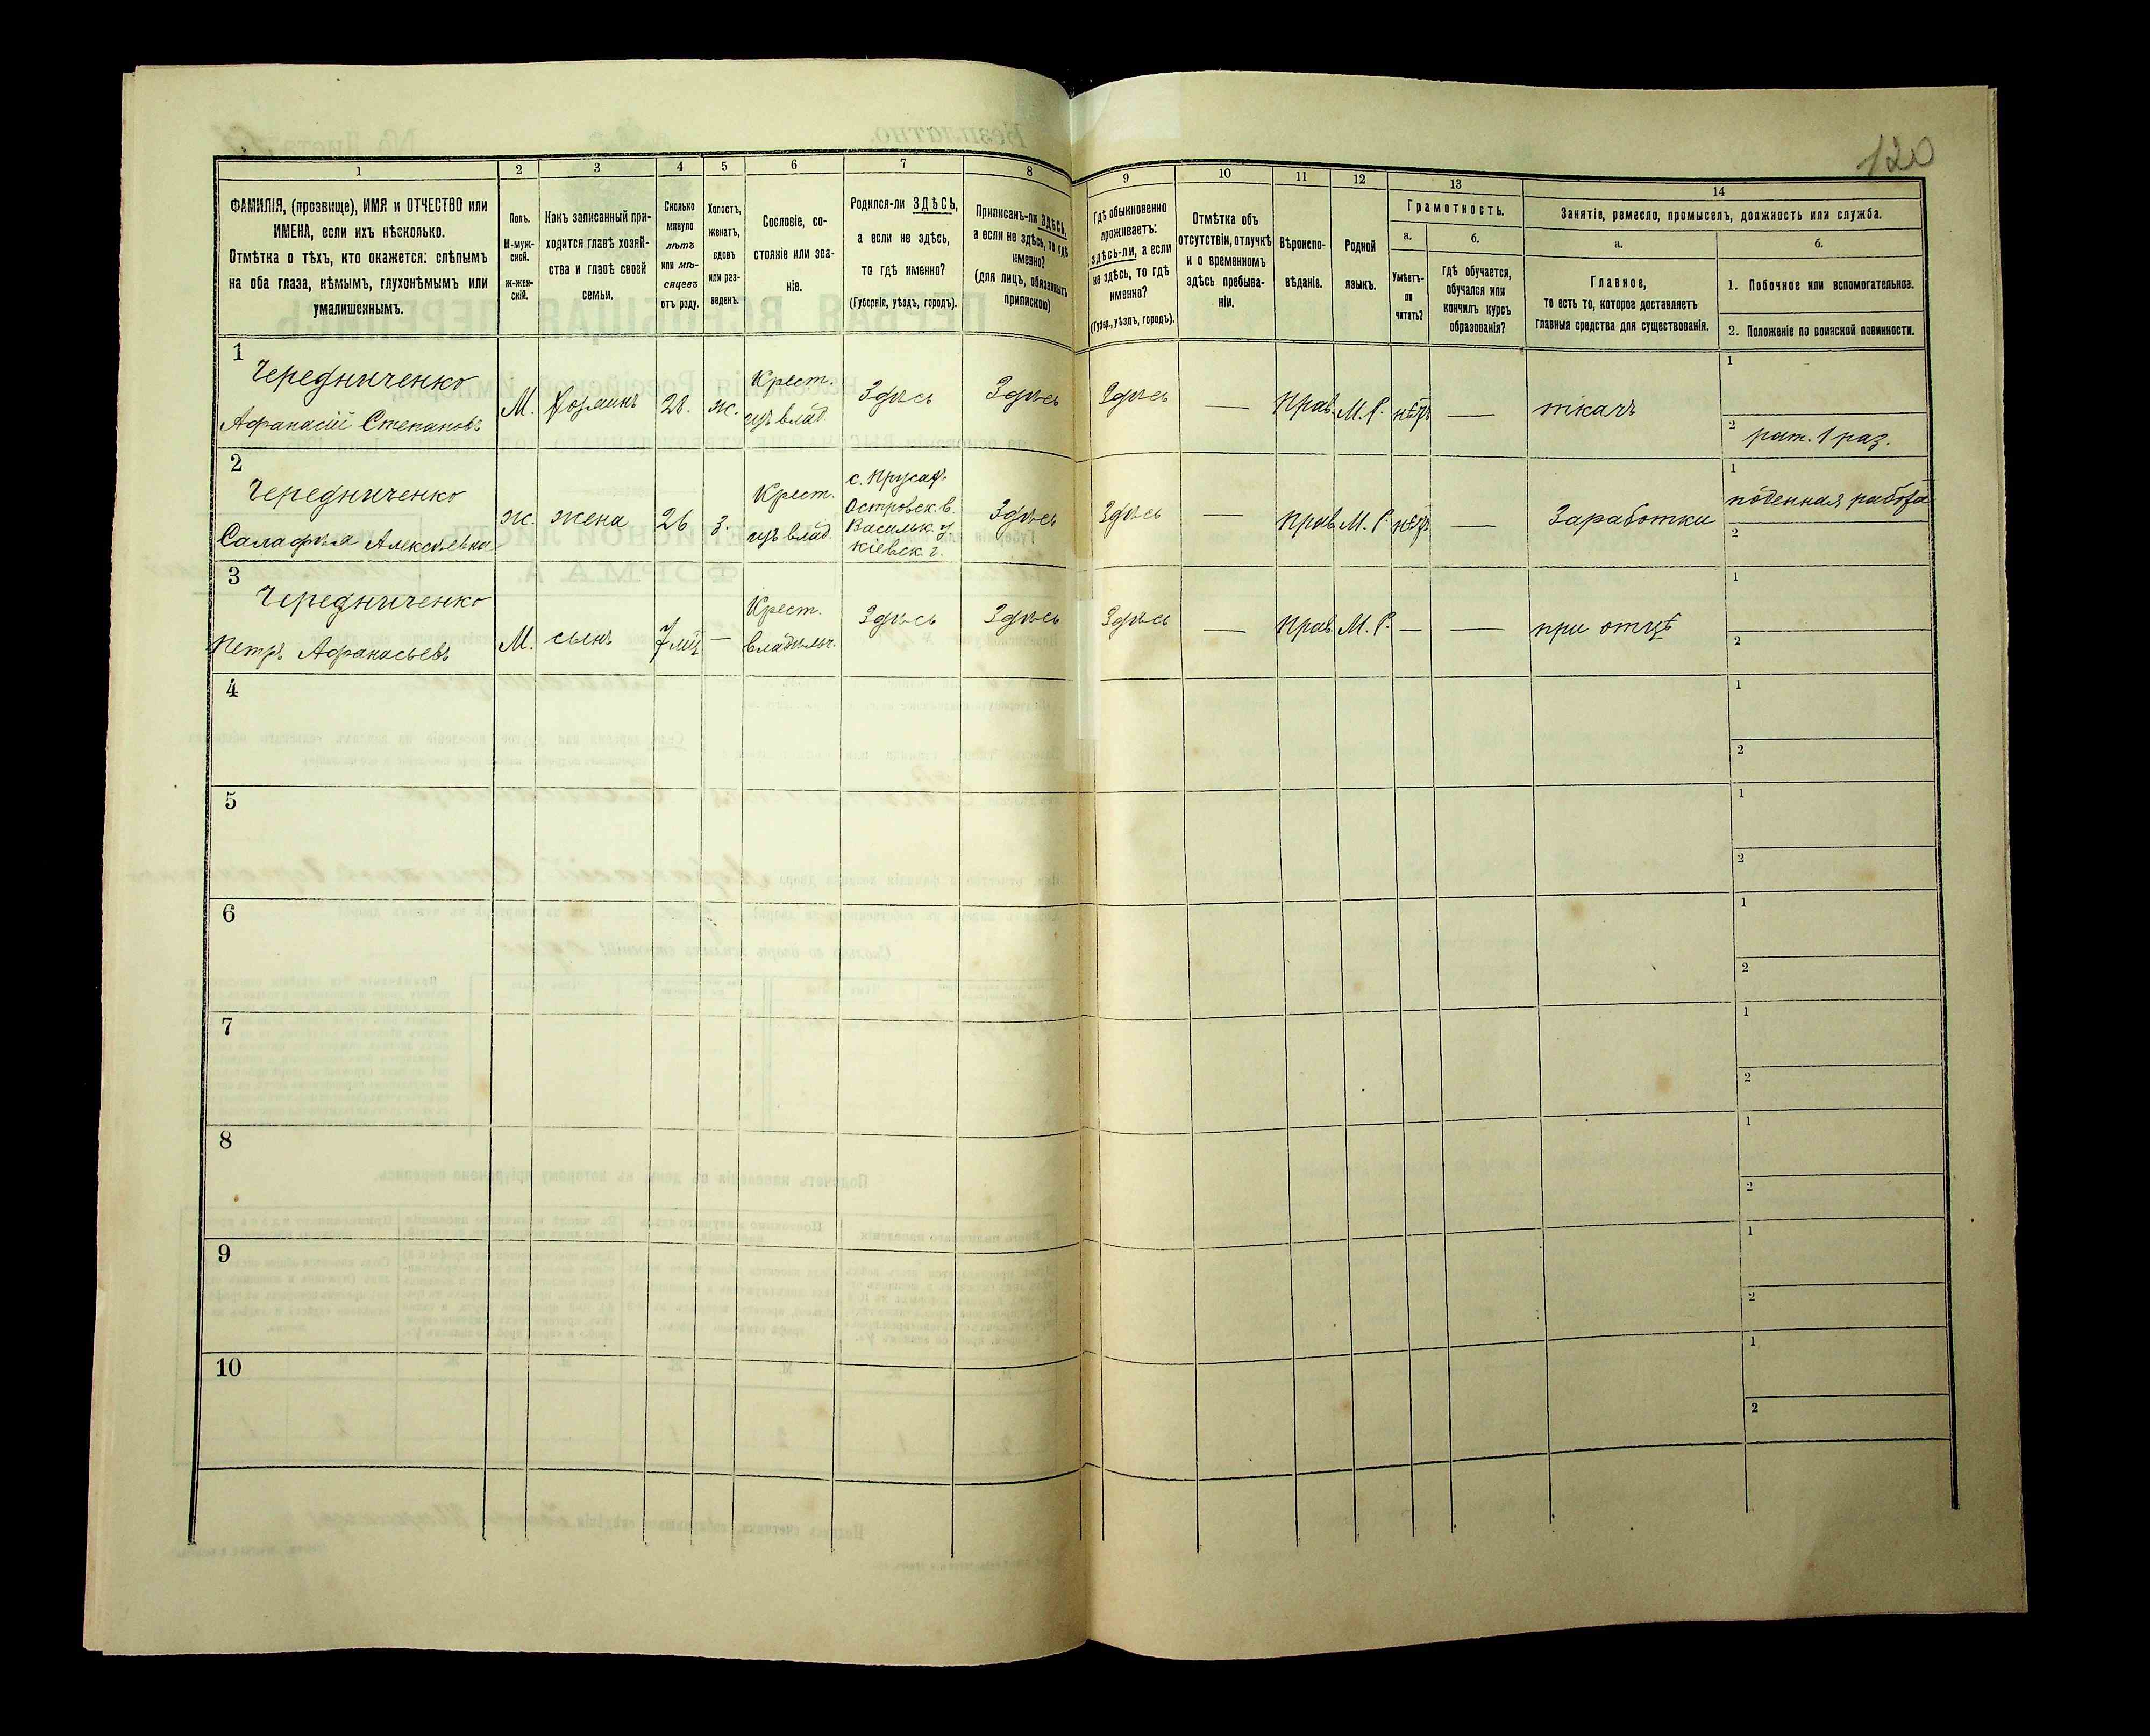 120
1 2 3 4 5 6 7 8 9 10 11 12 13 14
ФАМИЛІЯ, (прозвище), ИМЯ и ОТЧЕСТВО или
ИМЕНА, если ихъ нѣсколько.
Отмѣтка о тѣхъ, кто окажется: слѣпымъ
на оба глаза, нѣмымъ, глухонѣмымъ или
умалишеннымъ.
Полъ.
М-муж-
ской.
ж-жен-
скій.
Какъ записанный при-
ходится главѣ хозяй-
ства и главѣ своей
семьи.
Сколько
минуло
лѣтъ
или мѣ-
сяцевъ
отъ роду.
Холостъ,
женатъ,
вдовъ
или раз-
веденъ.
Сословіе, со-
стояніе или зва-
ніе.
Родился-ли ЗДѢСЬ,
а если не здѣсь,
то гдѣ именно?
(Губернія, уѣздъ, городъ).
Приписанъ-ли ЗДѢСЬ,
а если не здѣсь, то гдѣ
именно?
(для лицъ, обязанныхъ
припискою)
Гдѣ обыкновенно
проживаетъ:
здѣсь-ли, а если
не здѣсь, то гдѣ
именно?
(Губер., уѣздъ, городъ).
Отмѣтка объ
отсутствіи, отлучкѣ
и о временномъ
здѣсь пребыва-
ніи.
Вѣроиспо-
вѣданіе.
Родной
языкъ.
Грамотность.
а.
Умѣетъ-
ли
читать?
б.
гдѣ обучается,
обучался или
кончилъ курсъ
образованія?
Занятіе, ремесло, промыселъ, должность или служба.
а.
Главное,
то есть то, которое доставляетъ
главныя средства для существованія.
б.
1. Побочное или вспомогательное.
2. Положеніе по воинской повинности.
1
Чередниченко
Афанасій Степановъ
М. хозяинъ 28. ж.
Крест.
изъ влад.
Здѣсь Здѣсь Здѣсь — Прав. М. Р. нѣтъ — ткачъ
1
2 рат. 1 раз.
2
Чередниченко
Алексѣевна
ж. жена 26 з.
Крест.
изъ влад.
Островск. в.
Васильк. у.
Кіевск. г.
Здѣсь Здѣсь — Прав. М. Р. нѣтъ — Заработки
1 поденная работа
2
3
Чередниченко
Петръ Афанасьевъ
М. сынъ 7 мѣ —
Крест.
владѣльч.
Здѣсь Здѣсь Здѣсь — Прав. М. Р. — — при отцѣ
1
2
4
1
2
5
1
2
6
1
2
7
1
2
8
1
2
9
1
2
10
1
2